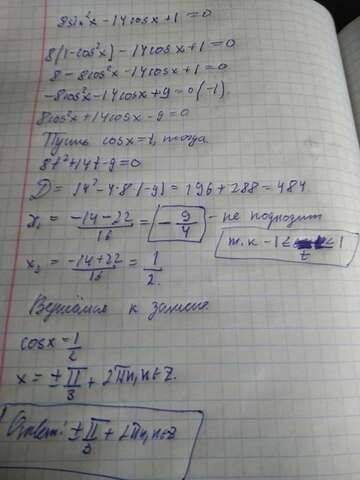 8sin²x - 14cosx + 1 = 0
8(1-cos²x) - 14cosx + 1 = 0
8 - 8cos²x - 14cosx + 1 = 0
-8cos²x - 14cosx + 9 = 0 (-1).
8cos²x + 14cosx - 9 = 0
Пусть cosx = t, тогда
8t² + 14t - 9 = 0
D = 14² - 4·8·(-9) = 196 + 288 = 484
x₁ = (-14-22)/16 = -9/4 - не подходит
т.к -1 ≤ t ≤ 1
x₂ = (-14+22)/16 = 1/2.
Вернёмся к замене
cosx = 1/2
x = ±π/3 + 2πn, n∈Z.
Ответ: ±π/3 + 2πn, n∈Z